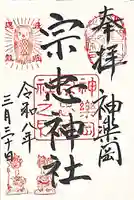 奉拝
神楽岡
宗忠神社
令和八年
三月三十日